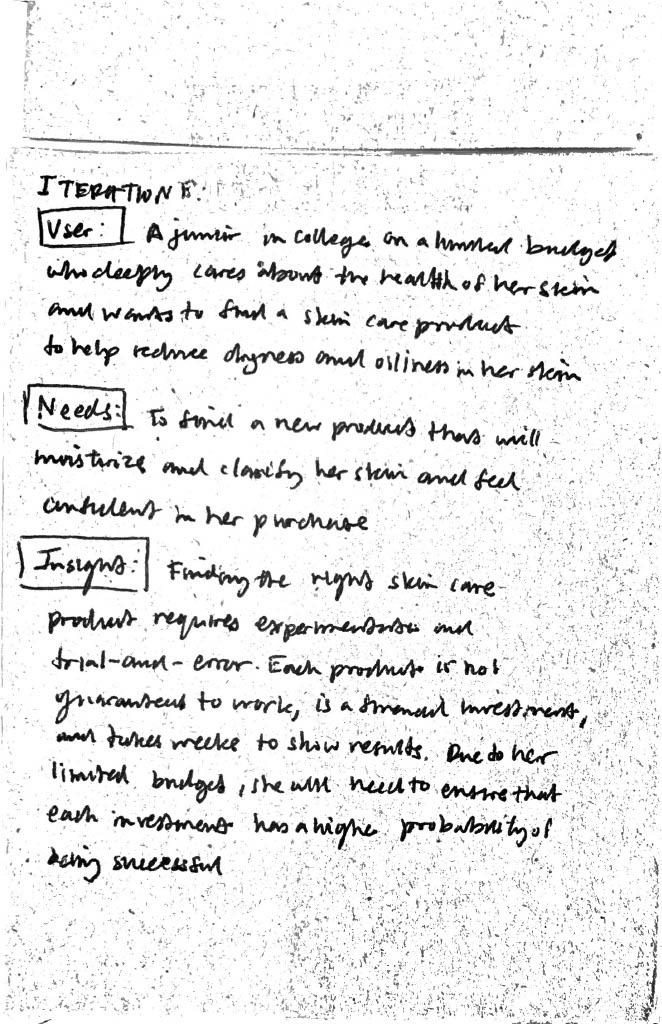 ITERATION E:
User: A junior in college on a limited budget
who deeply cares about the health of her skin
and wants to find a skin care product
to help reduce dryness and oiliness in her skin
Needs: To find a new product that will
moisturize and clarify her skin and feel
confident in her purchase
Insight: Finding the right skin care
product requires experimentation and
trial-and-error. Each product is not
guaranteed to work, is a financial investment,
and takes weeks to show results. Due to her
limited budget, she will need to ensure that
each investment has a higher probability of
being successful